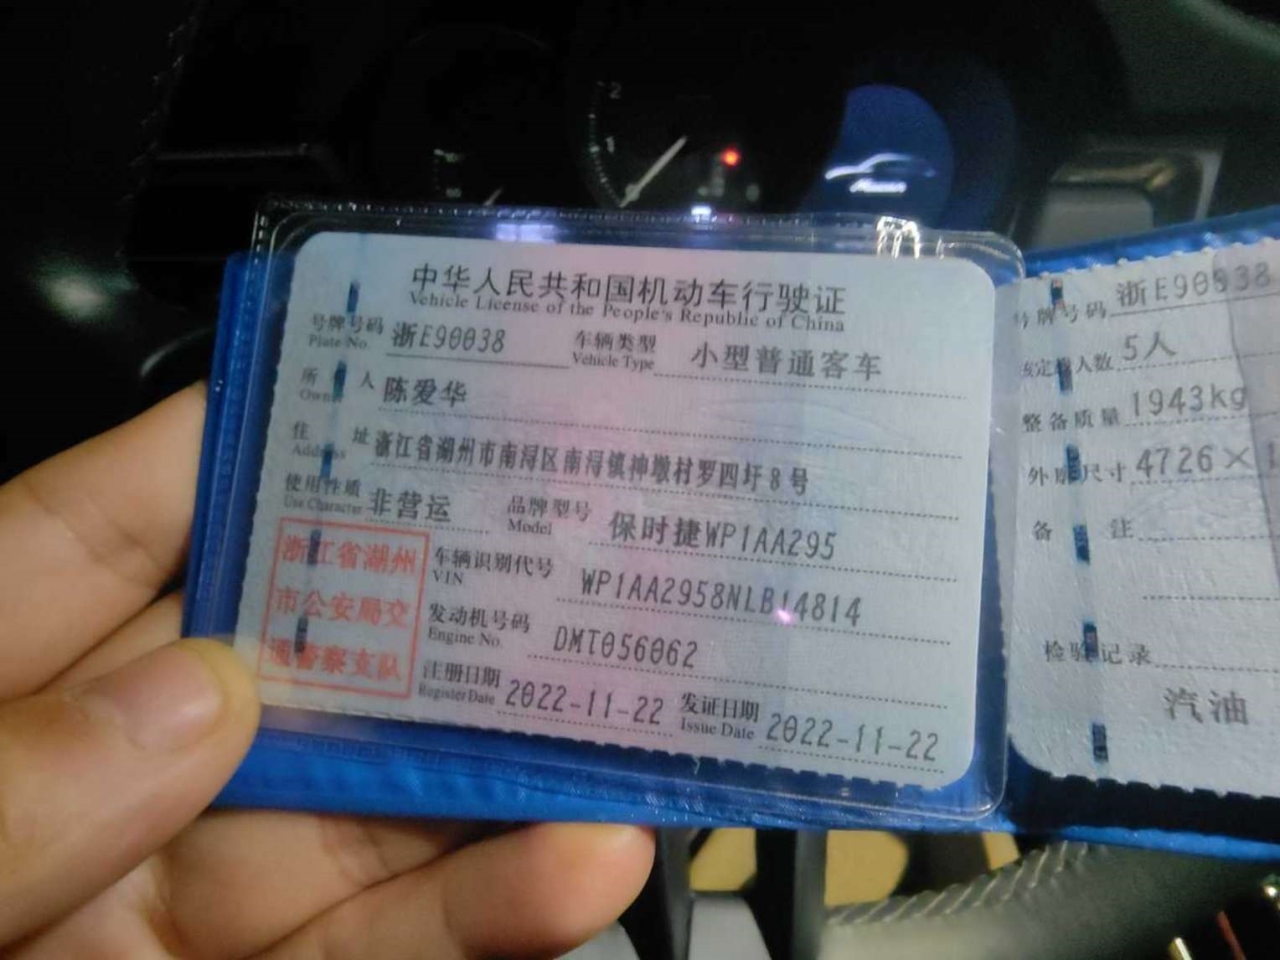 中华人民共和国机动车行驶证
Vehicle License of the People's Republic of China
号牌号码 浙E90038 车辆类型 小型普通客车
Plate No. Vehicle Type
所 人 陈爱华
住 址 浙江省湖州市南浔区南浔镇神墩村罗四圩8号
Address
使用性质 非营运 品牌型号 保时捷WP1AA295
Use Character Model
浙江省湖州
市公安局交
通警察支队
车辆识别代号 WP1AA2958NLB14814
VIN
发动机号码 DMT056062
Engine No.
注册日期 2022-11-22 发证日期 2022-11-22
Register Date Issue Date
号牌号码 浙E90038
核定载人数 5人
整备质量 1943kg
外廓尺寸 4726×
备 注
检验记录
汽油
2
1
Macan